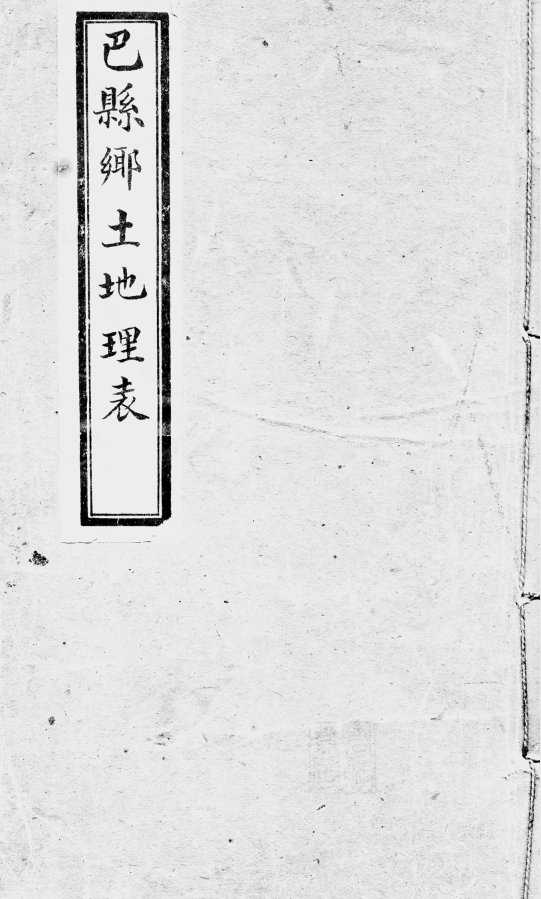 巴縣鄉土地理表